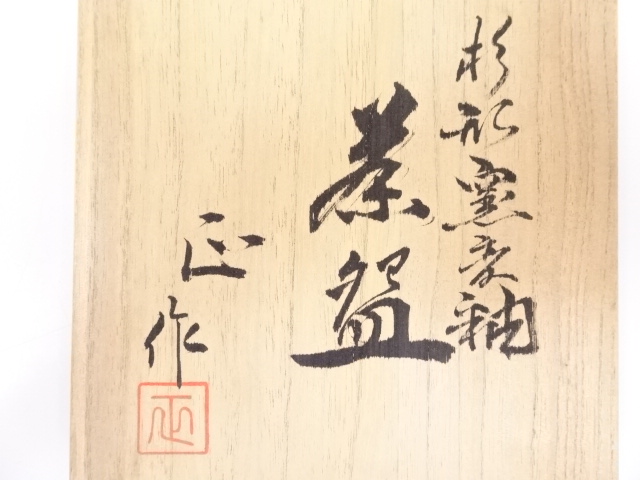 杉形窯変釉
茶盌
正作
正